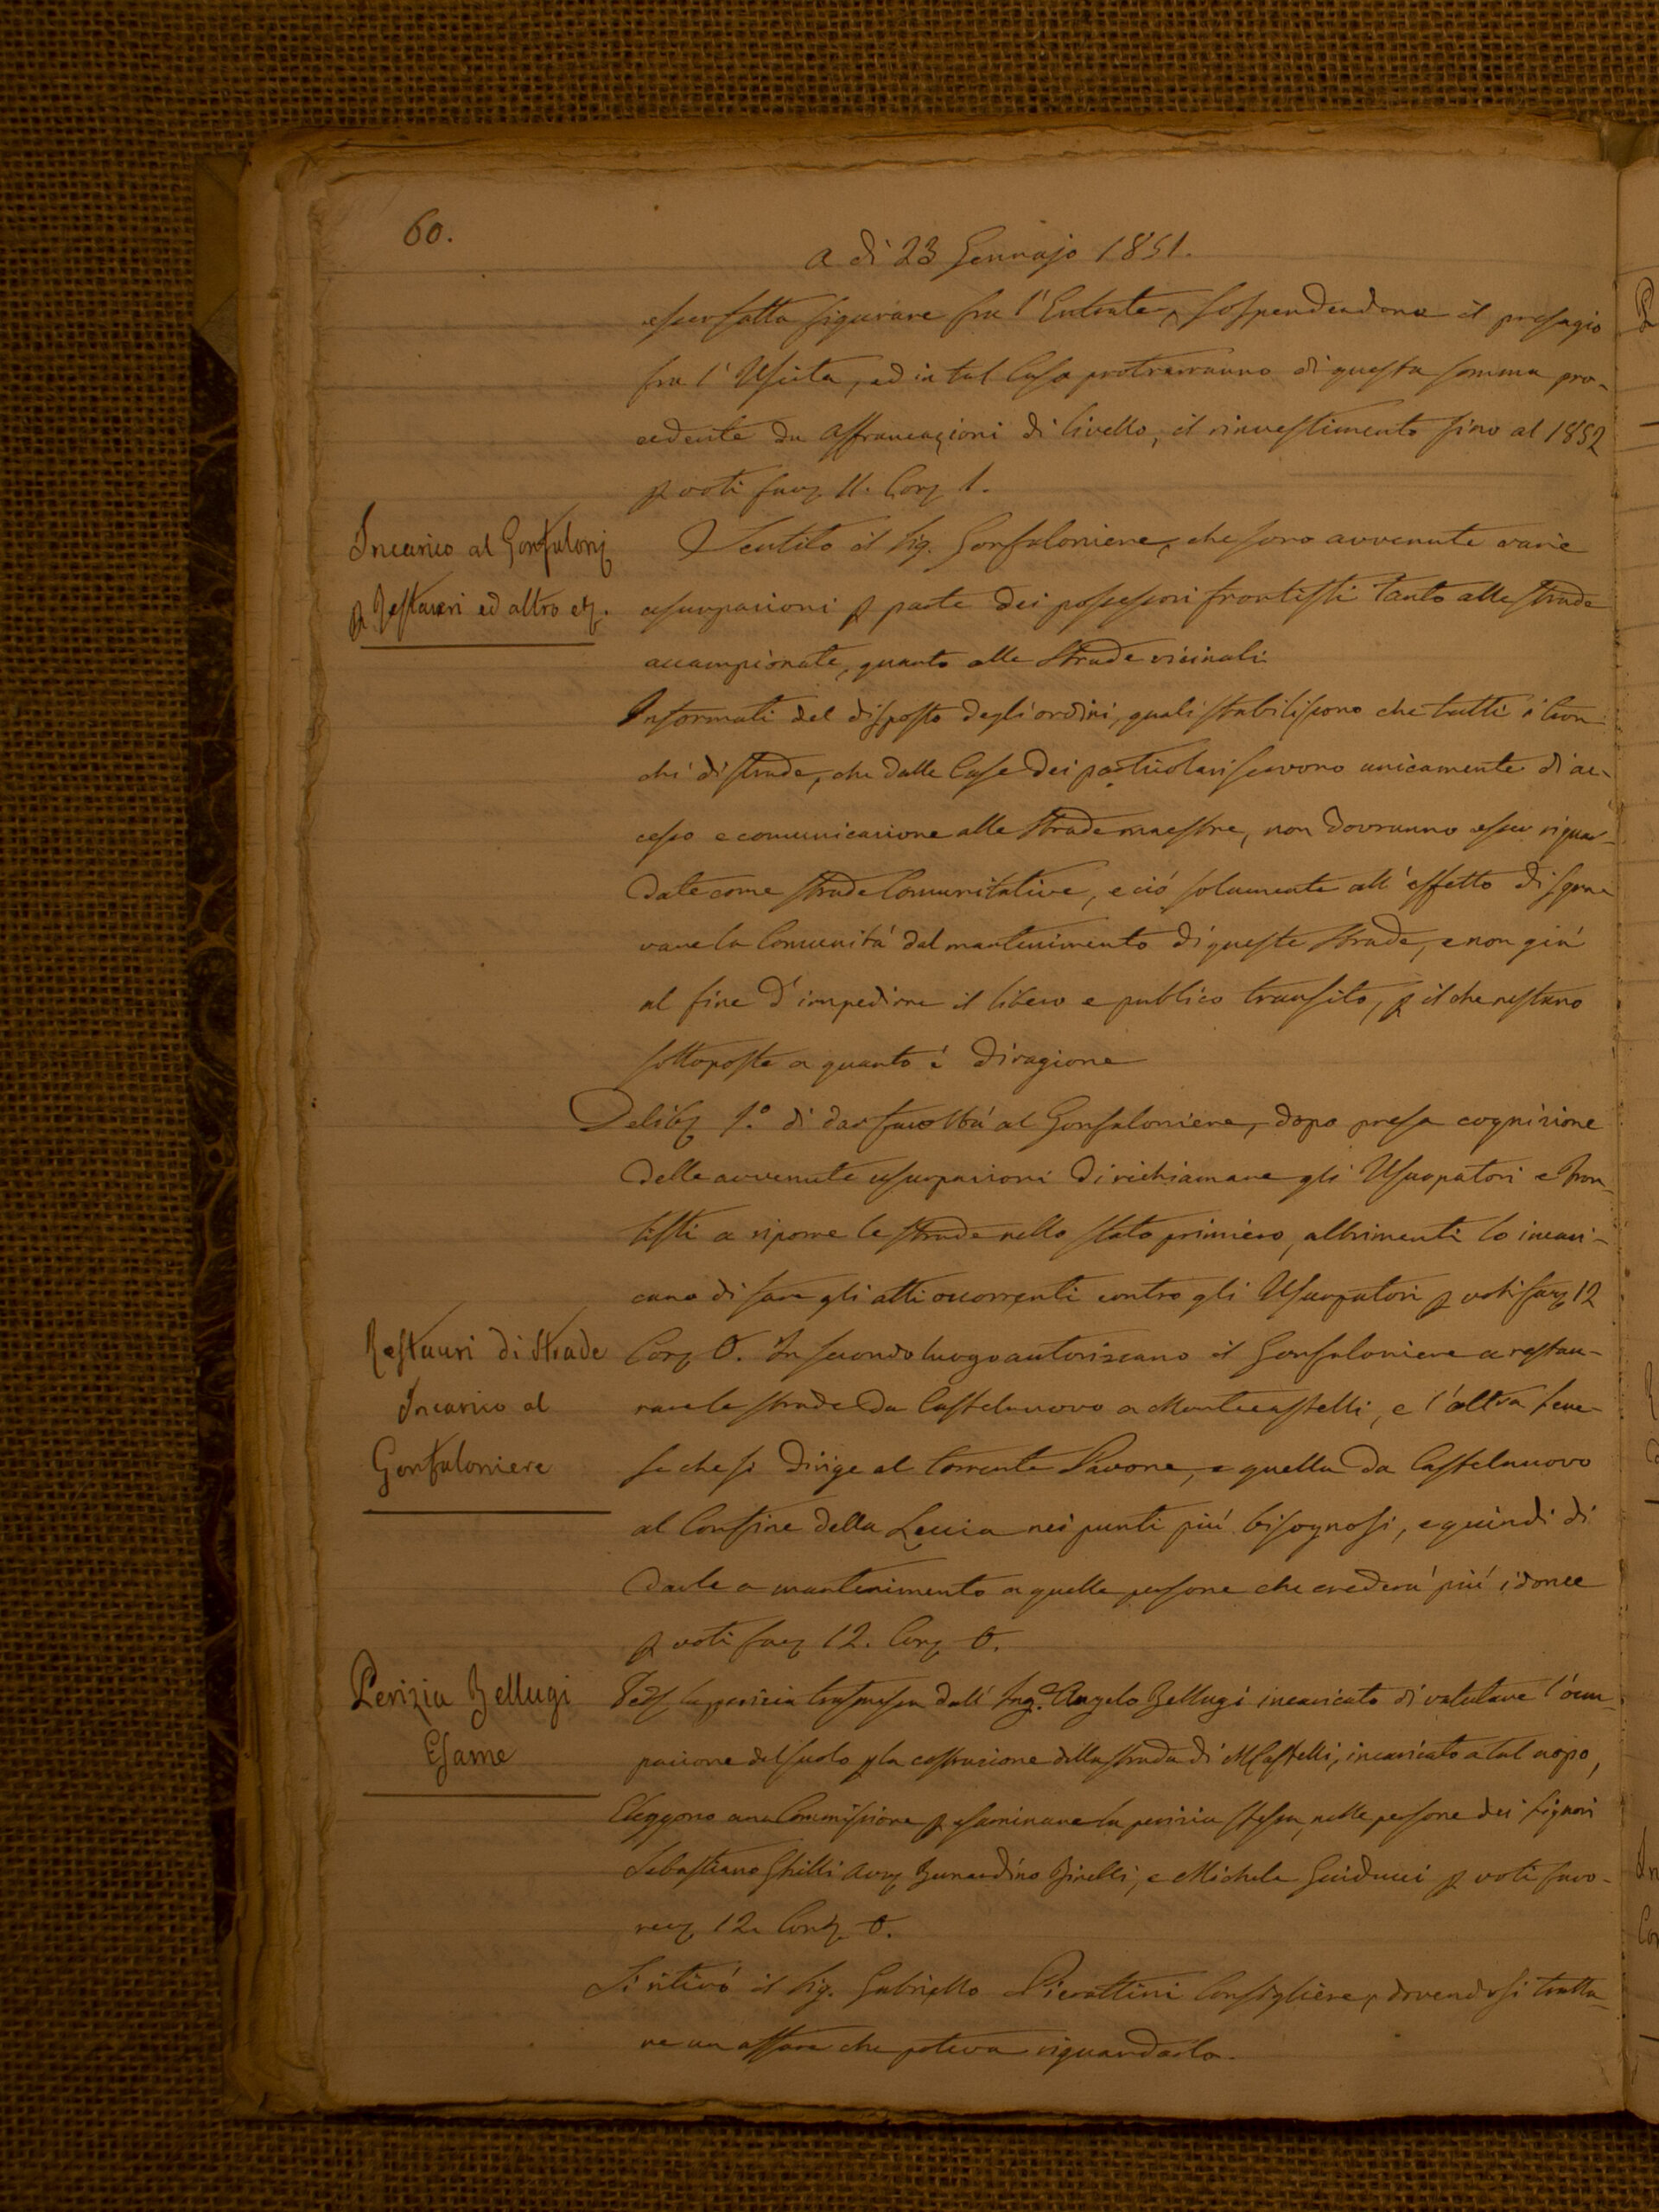 60.
a dì 23 Gennajo 1851.
esser fatta figurare fra l'Entrate, sospendendone il
fra l'Uscita, ed in tal caso protrarranno di questa somma pro-
cedente da affrancazioni di livello, il rinvestimento fino al 1852
p voti favz 11. Corz 1.
Incarico al Gonfalonz
p Restauri ed altro etz.
Sentito il Sig. Gonfaloniere, che sono avvenute varie
usurpazioni p parte dei possessori frontisti tanto alle strade
accampionate, quanto alle strade vicinali
Informati del disposto degli ordini, quali stabiliscono che tutti i tron
chi di strade, che dalle Case dei particolari servono unicamente di ac-
cesso e comunicazione alle strade maestre, non dovranno esser riguar-
date come strade Comunitative, e ciò solamente all'effetto di sgra
vare la Comunità dal mantenimento di queste strade, e non già
al fine d'impedirne il libero e publico transito, p il che restano
sottoposte a quanto è di ragione
Delibz 1.° di dar facoltà al Gonfaloniere, dopo presa cognizione
delle avvenute usurpazioni di richiamare gli Usurpatori e Fron-
tisti a riporre le strade nello stato primiero, altrimenti lo incari-
cano di fare gli atti occorrenti contro gli Usurpatori p voti favz 12
Corz 0. In secondo luogo autorizzano il Gonfaloniere a restau-
Restauri di Strade
Incarico al
Gonfaloniere
rare le strade da Castelnuovo a Montecastelli, e l'altra
che si dirige al torrente Pavone, e quella da Castelnuovo
al Confine della Leccia nei punti più bisognosi, e quindi di
darle a mantenimento a quelle persone che crederà più idonee
p voti favz 12. Corz 0.
Perizia Bellugi
Esame
Vedz la perizia trasmessa dall'Ing.e Angelo Bellugi incaricato di valutare l'occu-
pazione del suolo p la costruzione della strada di MCastelli, incaricato a tal uopo,
Eleggono una Commissione p esaminare la perizia stessa, nelle persone dei Signori
Sebastiano Ghilli Avvz Bernardino Birelli, e Michele Guiducci p voti favo-
revz 12. Conz 0.
Si ritirò il Sig. Gabriello Pierattini Consigliere, dovendosi tratta-
re un affare che poteva riguardarlo.